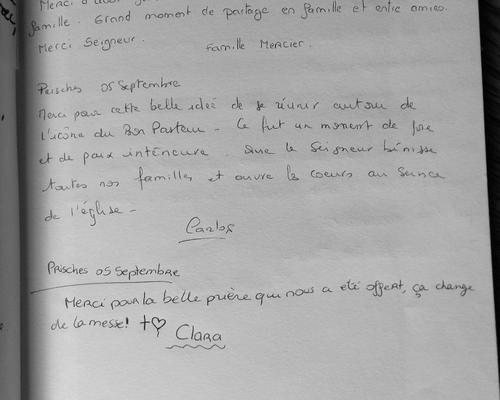 Merci d'avoir
famille. Grand moment de partage en famille et entre amies.
Merci Seigneur. Famille Mercier.
Prisches 05 Septembre
Merci pour cette belle idée de se réunir autour de
L'icône du Bon Pasteur - Ce fut un moment de joie
et de paix intérieure. Que le Seigneur bénisse
toutes nos familles et ouvre les coeurs au service
de l'église -
Carlos
Prisches 05 Septembre
Merci pour la belle prière qui nous a été offert, ça change
de la messe! +♡ Clara